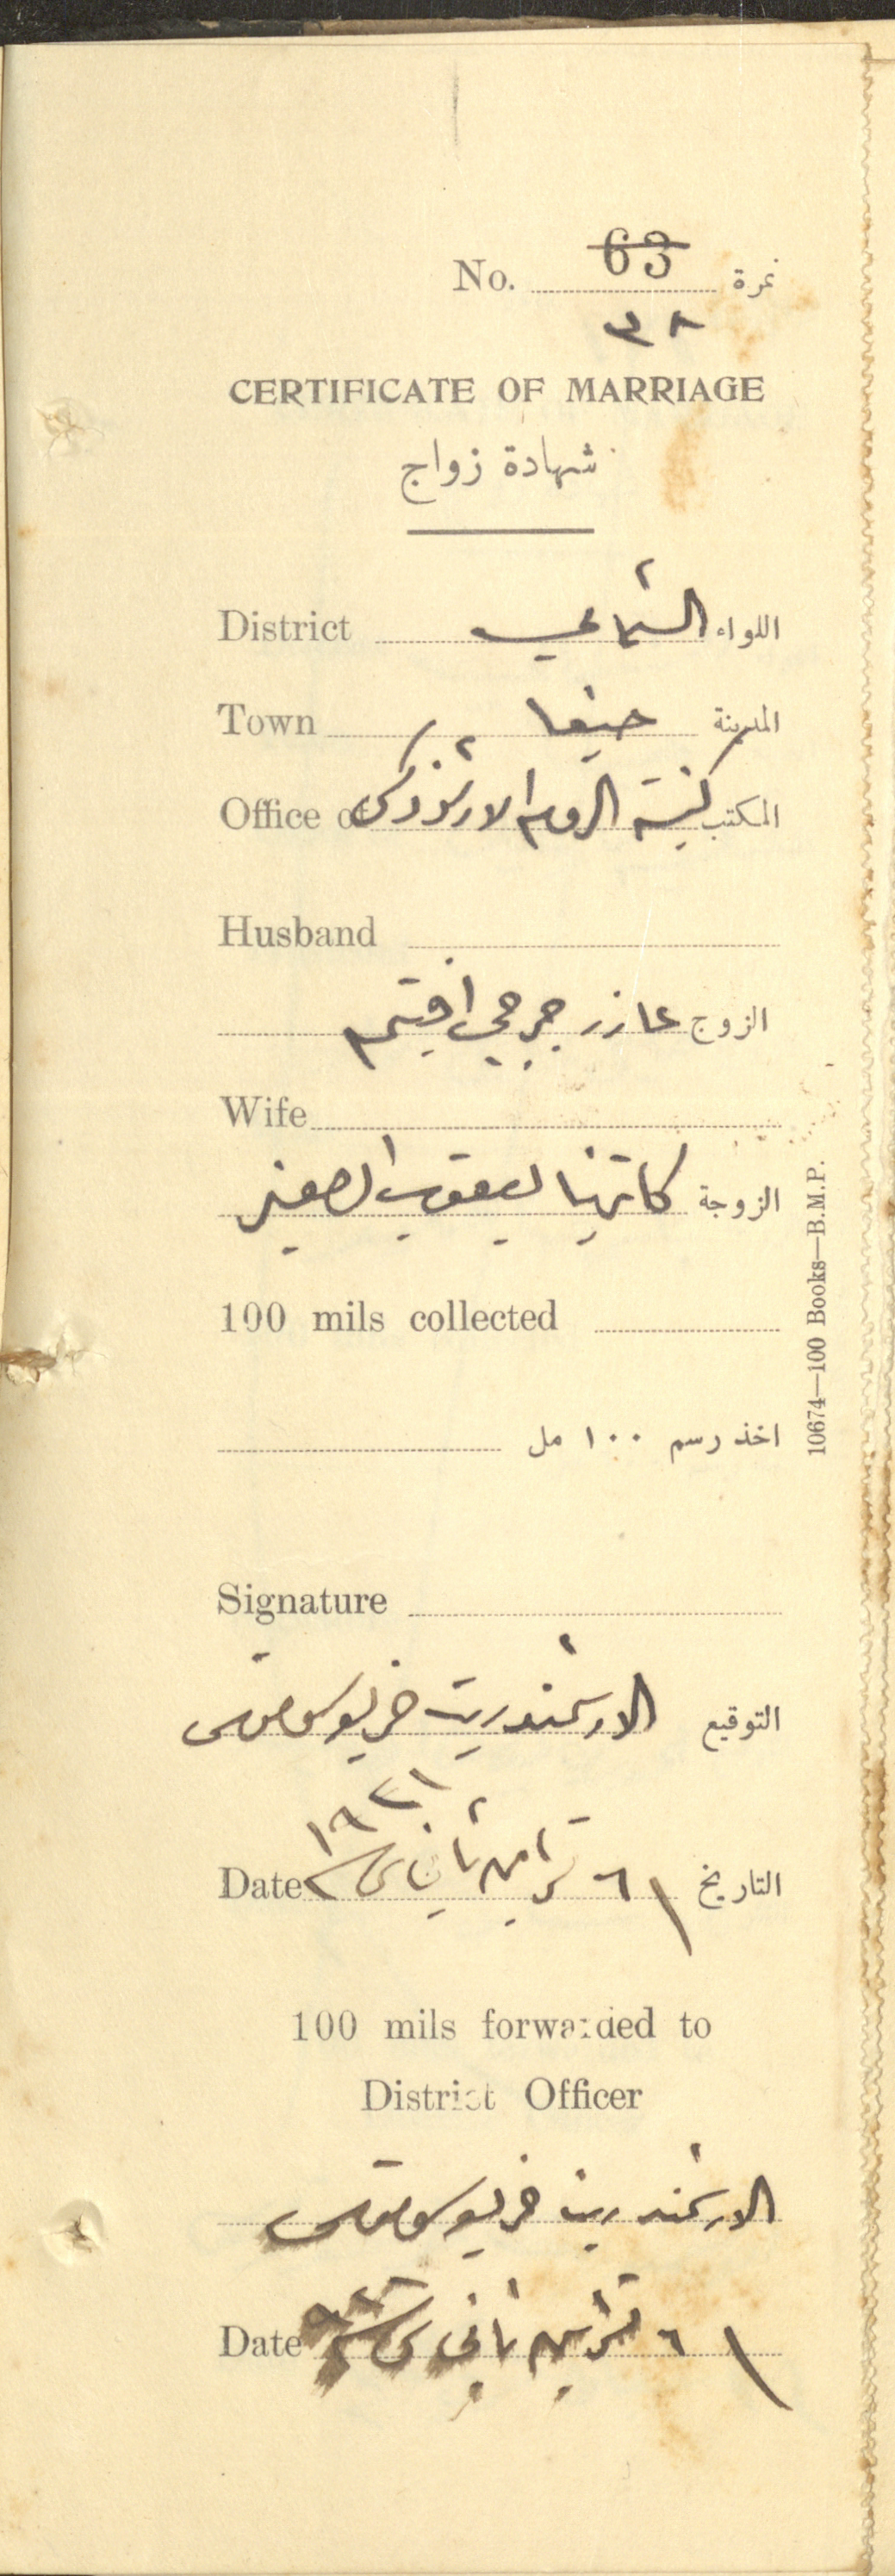 No. 63 نمرة
٣٨
CERTIFICATE OF MARRIAGE
شهادة زواج
District الشمالي اللواء
Town حيفا المدينة
Office of كنيسة الروم الارثوذكس المكتب
Husband
الزوج عازر جرجي افتيم
Wife
الزوجة كاترينا يعقوب الصغير
100 mils collected
اخذ رسم ١٠٠ مل
Signature
التوقيع الارشمندريت خريسوستموس
Date ٦ تشرين ثاني سنة ١٩٣١ التاريخ
100 mils forwarded to
District Officer
الارشمندريت خريسوستموس
Date ٦ تشرين ثاني سنة
10674—100 Books—B.M.P.